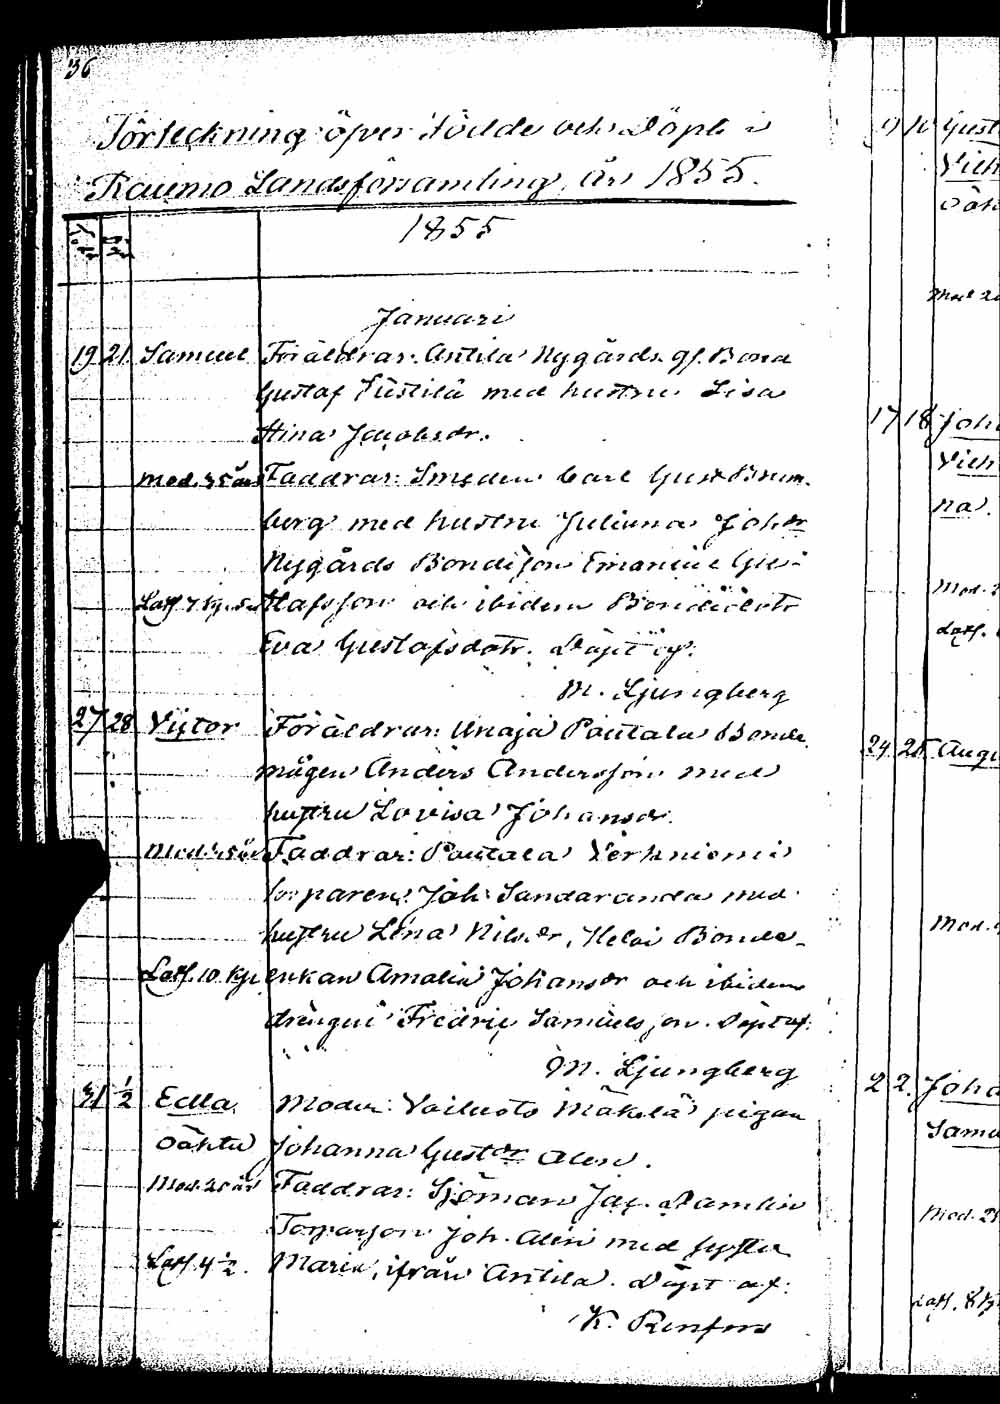 36
Förteckning öfver Födde och Döpte i
Raumo Landsförsamling, år 1855.
1855
Januari
19 21. Samuel Föräldrar: Anttila Nygårds gf. Bond
Gustaf Tüstilä med hustru Lisa
Stina Jacobsdr.
Mod. 35 år Faddrar: Smeden Carl Gust Brem-
berg med hustru Juliana Johdr
Nygårds Bondeson Emanuel Gus-
Latf. 7 kp. tafsson och ibidem Bondedotr
Eva Gustafsdotr. Döpt af:
M. Ljungberg
27 28 Victor Föräldrar: Unaja Pautala Bonde
mågen Anders Andersson med
hustru Lovisa Johansdr.
Mod. Faddrar: Pautala
Joh: Sandaranda med
hustru Lena Nilsdr, Heloi Bonde-
Latf. 10 kp. enkan Amalia Johansdr och ibidem
drängen Fredric Samuelsson. Döpt af:
M. Ljungberg
31 1/2 Edla Moder: Voiluoto Mäkelä pigan
oäkta Johanna Gustdr Alen.
Mod. 20 år Faddrar: Sjöman Jac. Damlin
Torparson Joh. Alen med syster
Latf. 4 1/2. Maria, ifrån Anttila. Döpt af:
K. Renfors
9 10 Gust
Vich
oäk
Mod. 2
17 18 Joha
Vich
na.
Mod. 2
Latf.
24 25 Augu
Mod.
2 2. Joha
Samu
Mod. 2
Latf. 8 kp